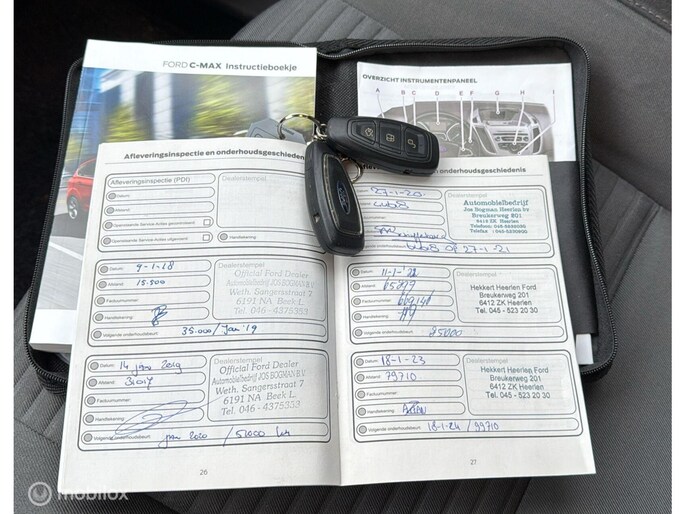 FORD C-MAX Instructieboekje
OVERZICHT INSTRUMENTENPANEEL
A B C D E F G H I
Afleveringsinspectie en onderhoudsgeschiedenis
Afleveringsinspectie (PDI)
Dealerstempel
Datum:
Afstand:
Handtekening:
Datum: 9-1-18
Afstand: 15.500
Factuurnummer:
Handtekening:
Volgende onderhoudsbeurt: 35.000/Jan '19
Dealerstempel
Official Ford Dealer
Automobielbedrijf JOS BOGMAN B.V.
Weth. Sangersstraat 7
6191 NA Beek L.
Tel. 046 - 4375353
Datum: 14 jan 2019
Afstand: 31017
Factuurnummer:
Handtekening:
Volgende onderhoudsbeurt: jan 2020 / 51000 km
Dealerstempel
Official Ford Dealer
Automobielbedrijf JOS BOGMAN B.V.
Weth. Sangersstraat 7
6191 NA Beek L.
Tel. 046 - 4375353
26
onderhoudsgeschiedenis
27-1-20
Dealerstempel
Automobielbedrijf
Jos Bogman Heerlen bv
Breukerweg 201
6412 ZK Heerlen
OF 27-1-21
Datum: 11-1-'22
Afstand:
Factuurnummer:
Handtekening:
Volgende onderhoudsbeurt: 85000
Dealerstempel
Hekkert Heerlen Ford
Breukerweg 201
6412 ZK Heerlen
Tel. 045 - 523 20 30
Datum: 18-1-23
Afstand: 79710
Factuurnummer:
Handtekening:
Volgende onderhoudsbeurt: 18-1-24 / 99710
Dealerstempel
Hekkert Heerlen, Ford
Breukerweg 201
6412 ZK Heerlen
Tel. 045 - 523 20 30
27
mobilox